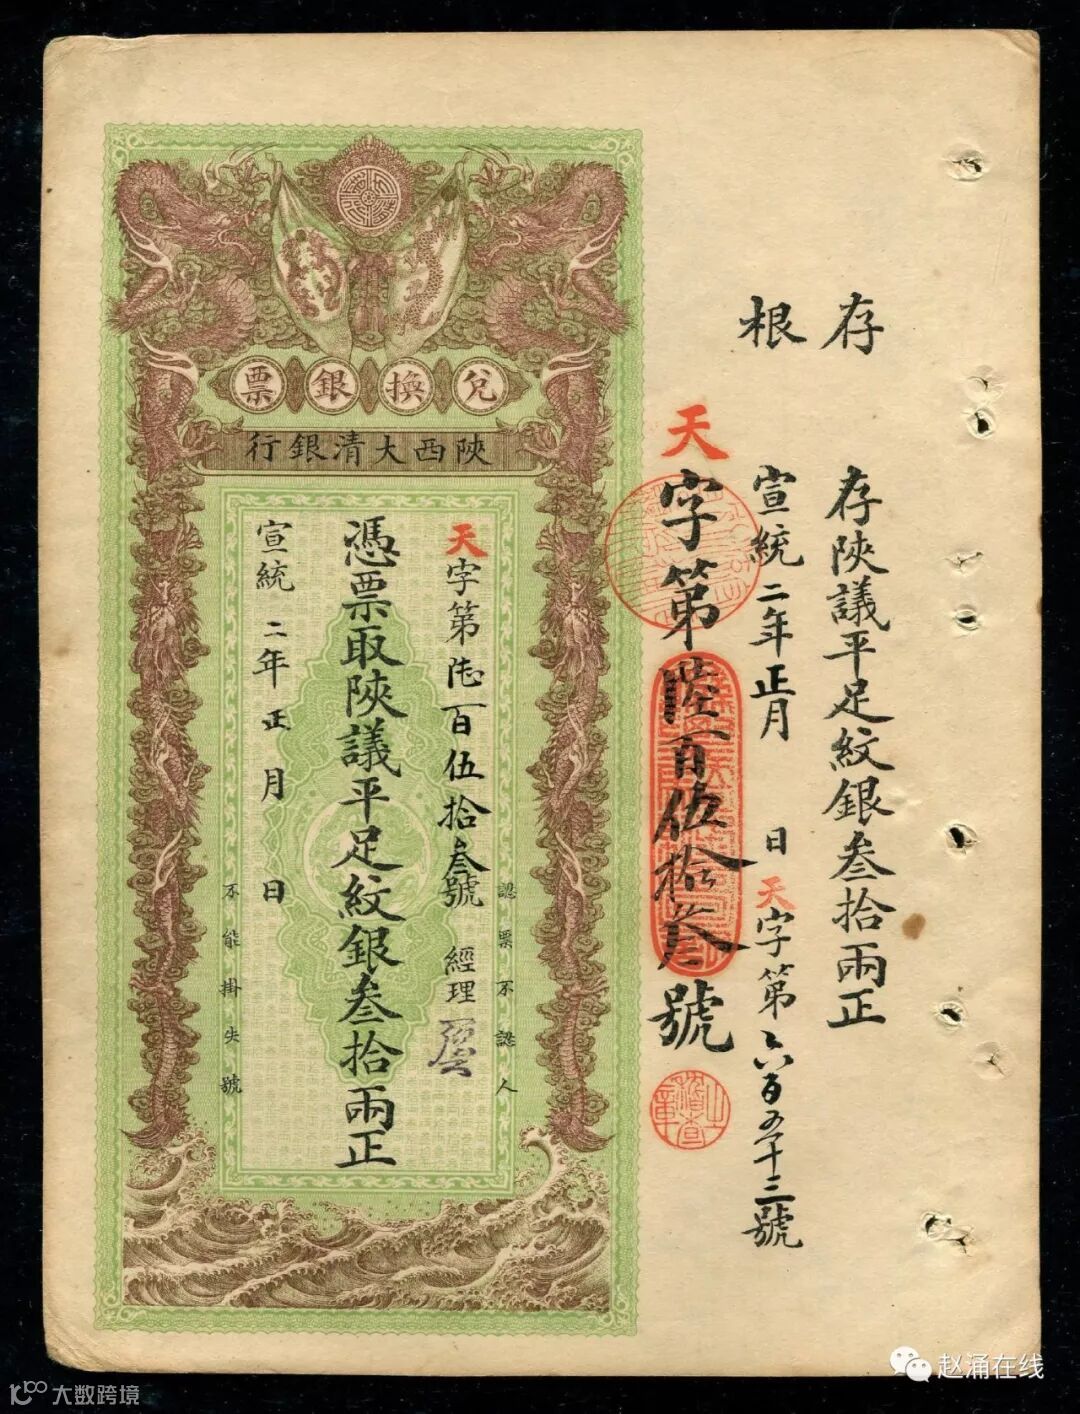 存根
存陝議平足紋銀叁拾兩正
宣統二年正月 日 天字第六百五十三號
天字第陸百伍拾叁號
兌換銀票
陝西大清銀行
認票不認人
天字第陸百伍拾叁號 經理
憑票取陝議平足紋銀叁拾兩正
宣統二年正月 日
不能掛失號
赵涌在线
大数跨境